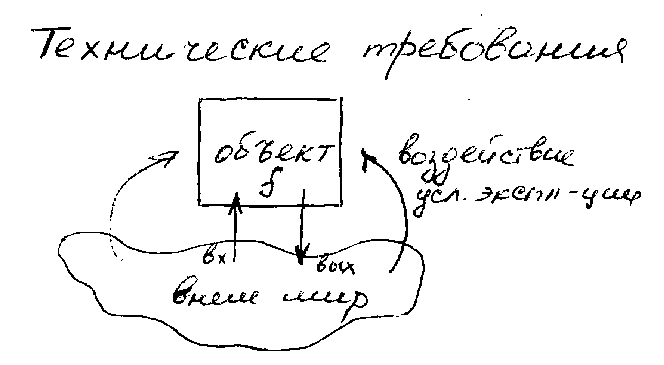 Технические требования
объект
f
воздействие
усл. экспл-ции
вх
вых
внеш мир